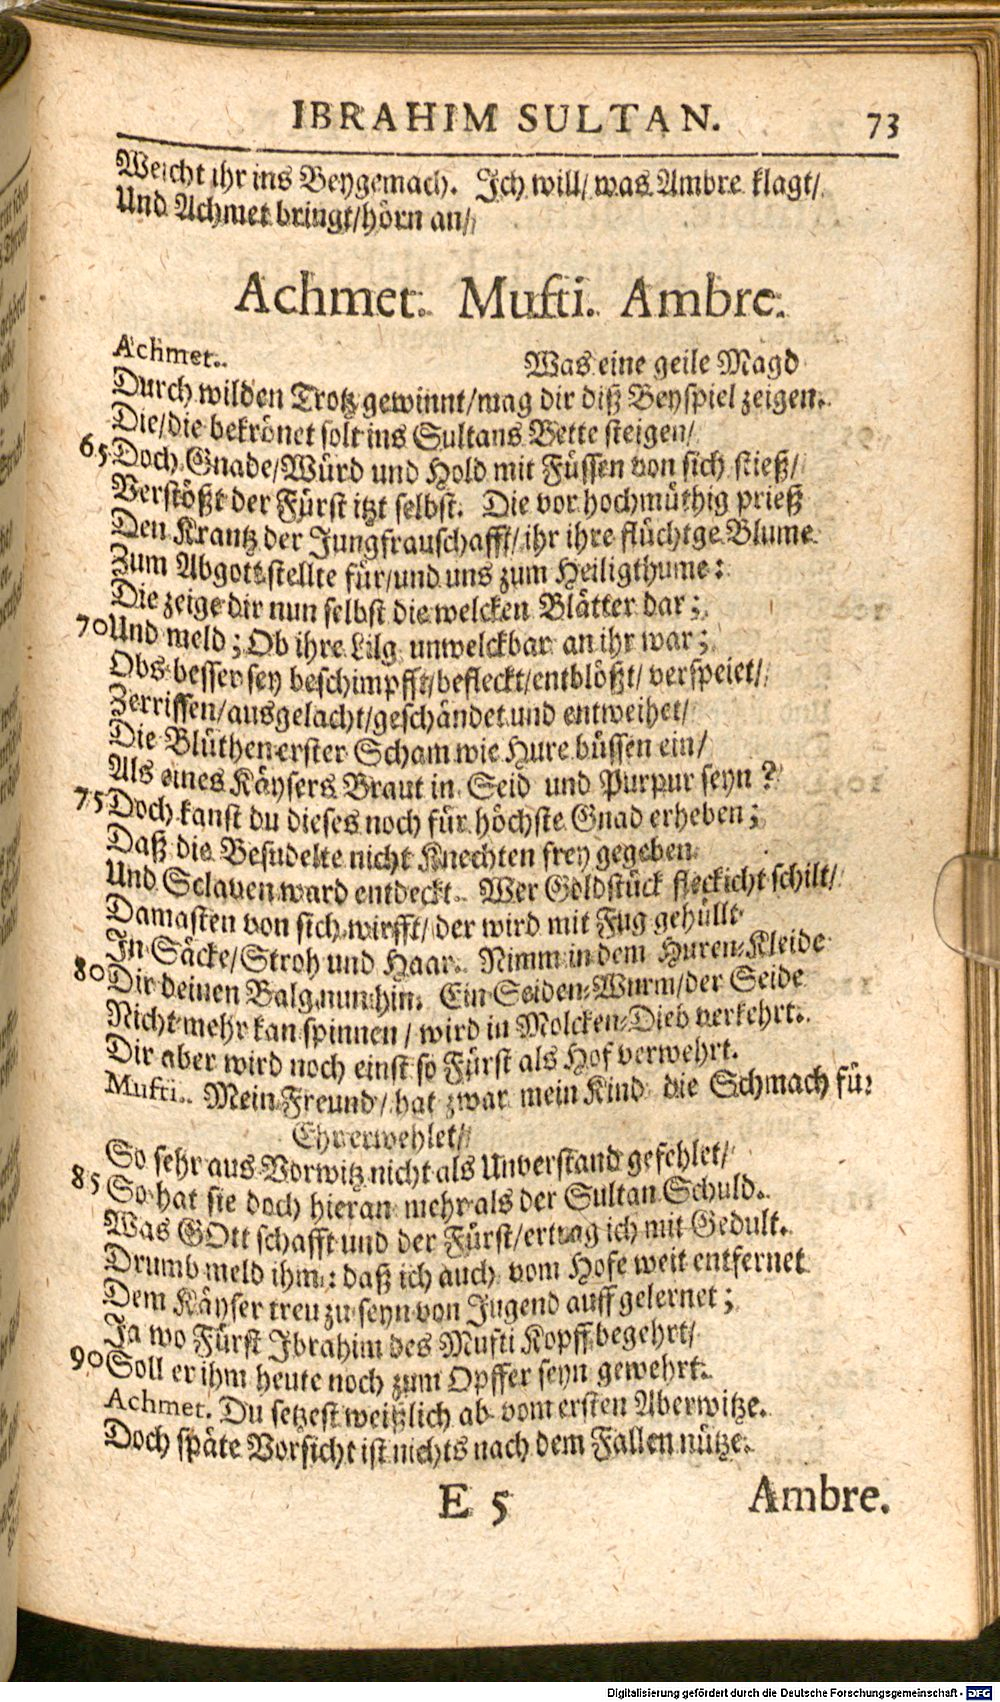 IBRAHIM SULTAN. 73
Weicht ihr ins Beygemach. Ich will/ was Ambre klagt/
Und Achmet bringt/hörn an/
Achmet. Mufti. Ambre.
Achmet. Was eine geile Magd
Durch wilden Trotz gewinnt/mag dir diß Beyspiel zeigen.
Die/die bekrönet solt ins Sultans Bette steigen/
65 Doch Gnade/Würd und Hold mit Füssen von sich stieß/
Verstößt der Fürst itzt selbst. Die vor hochmüthig prieß
Den Krantz der Jungfrauschafft/ihr ihre flüchtge Blume
Zum Abgott stellte für/und uns zum Heiligthume:
Die zeige dir nun selbst die welcken Blätter dar;
70 Und meld; Ob ihre Lilg unwelckbar an ihr war;
Obs besser sey beschimpfft/befleckt/entblößt/ verspeiet/
Zerrissen/ausgelacht/geschändet und entweihet/
Die Blüthen erster Scham wie Hure büssen ein/
Als eines Käysers Braut in Seid und Purpur seyn?
75 Doch kanst du dieses noch für höchste Gnad erheben;
Daß die Besudelte nicht Knechten frey gegeben
Und Sclaven ward entdeckt. Wer Goldstück fleckicht schilt/
Damasten von sich wirfft/ der wird mit Fug gehüllt
In Säcke/Stroh und Haar. Nimm in dem Huren-Kleide
80 Dir deinen Balg nun hin. Ein Seiden-Wurm/der Seide
Nicht mehr kan spinnen / wird in Molcken-Dieb verkehrt.
Dir aber wird noch einst so Fürst als Hof verwehrt.
Mufti. Mein Freund/ hat zwar mein Kind die Schmach für
Ehr erwehlet/
So sehr aus Vorwitz nicht als Unverstand gefehlet/
85 So hat sie doch hieran mehr als der Sultan Schuld.
Was GOtt schafft und der Fürst/ertrag ich mit Gedult.
Drumb meld ihm: daß ich auch vom Hofe weit entfernet
Dem Käyser treu zu seyn von Jugend auff gelernet;
Ja wo Fürst Ibrahim des Mufti Kopff begehrt/
90 Soll er ihm heute noch zum Opffer seyn gewehrt.
Achmet. Du setzest weißlich ab vom ersten Aberwitze.
Doch späte Vorsicht ist nichts nach dem Fallen nütze.
E 5 Ambre.
Digitalisierung gefördert durch die Deutsche Forschungsgemeinschaft - DFG